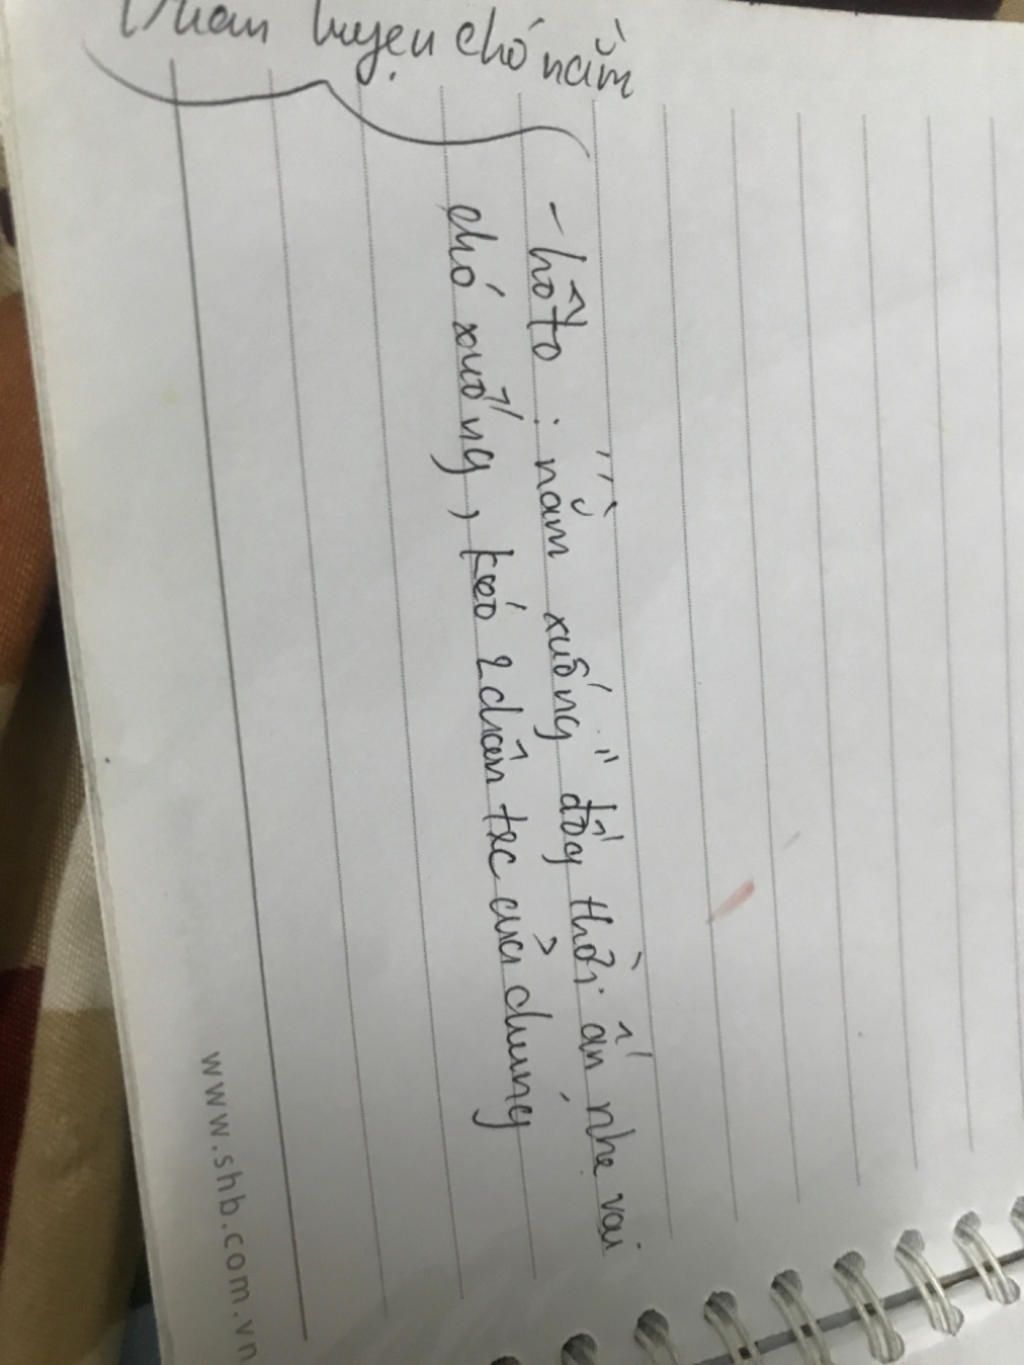 huấn luyện chó nằm
- hô to : " nằm xuống " đồng thời ấn nhẹ vai
chó xuống, kéo 2 chân trc của chúng
www.shb.com.vn